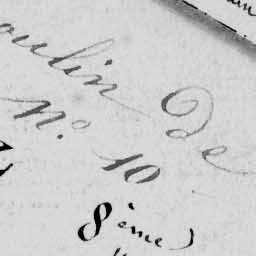 oulin De
N.° 10
8ème